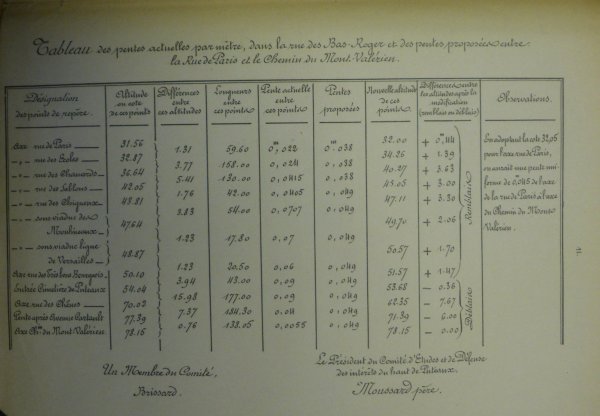 Tableau des pentes actuelles par mètre, dans la rue des Bas-Roger et des pentes proposées entre
la Rue de Paris et le Chemin du Mont-Valérien.
Désignation des points de repère. | Altitude ou cote de ces points | Différences entre ces altitudes | Longueurs entre ces points | Pente actuelle entre ces points | Pentes proposées | Nouvelle altitude de ces points. | Différences entre les altitudes après la modification (remblais ou déblais) | Observations.
Axe rue de Paris 31.56 32.00 + 0,44
1.31 59.60 0,022 0.038
" " rue des Ecoles 32.87 34.26 + 1.39
3.77 158.00 0,024 0,038
" " rue des Chauvards 36.64 40.27 + 3.63
5.41 130.00 0,0415 0,038
" " rue des Sablons 42.05 45.05 + 3.00
1.76 42.00 0,0405 0,049
" " rue des 43.81 47.11 + 3.30
3.83 54.00 0,0707 0,049
" " sous viaduc des
Moulineaux 47.64 49.70 + 2.06
1.23 17.80 0,07 0,049
" " sous viaduc ligne
de Versailles 48.87 50.57 + 1.70
1.23 20.50 0,06 0,049
Axe rue des Très bons Bourgeois 50.10 51.57 + 1.47
3.94 43.00 0,09 0,049
Entrée Cimetière de Puteaux 54.04 53.68 - 0.36
15.98 177.00 0,09 0,049
Axe rue des Chênes 70.02 62.35 - 7.67
7.37 184.30 0,04 0,049
Pente après Avenue Cartault 77.39 71.39 - 6.00
0.76 138.05 0,0055 0,049
Axe Chin du Mont-Valérien 78.15 78.15 - 0.00
Remblais
Déblais
En adoptant la cote 32,05
pour l'axe rue de Paris,
on aurait une pente uni-
forme de 0,045 de l'axe
de la rue de Paris à l'axe
du Chemin du Mont-
Valérien.
Un Membre du Comité,
Brissard.
Le Président du Comité d'Etudes et de Défense
des intérêts du haut de Puteaux.
Moussard père.